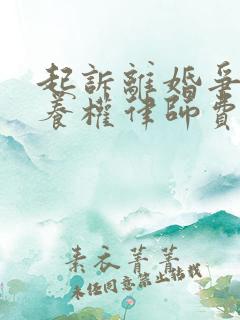 起訴離婚爭
養權律師費
素衣菁菁
未經同意禁止轉載